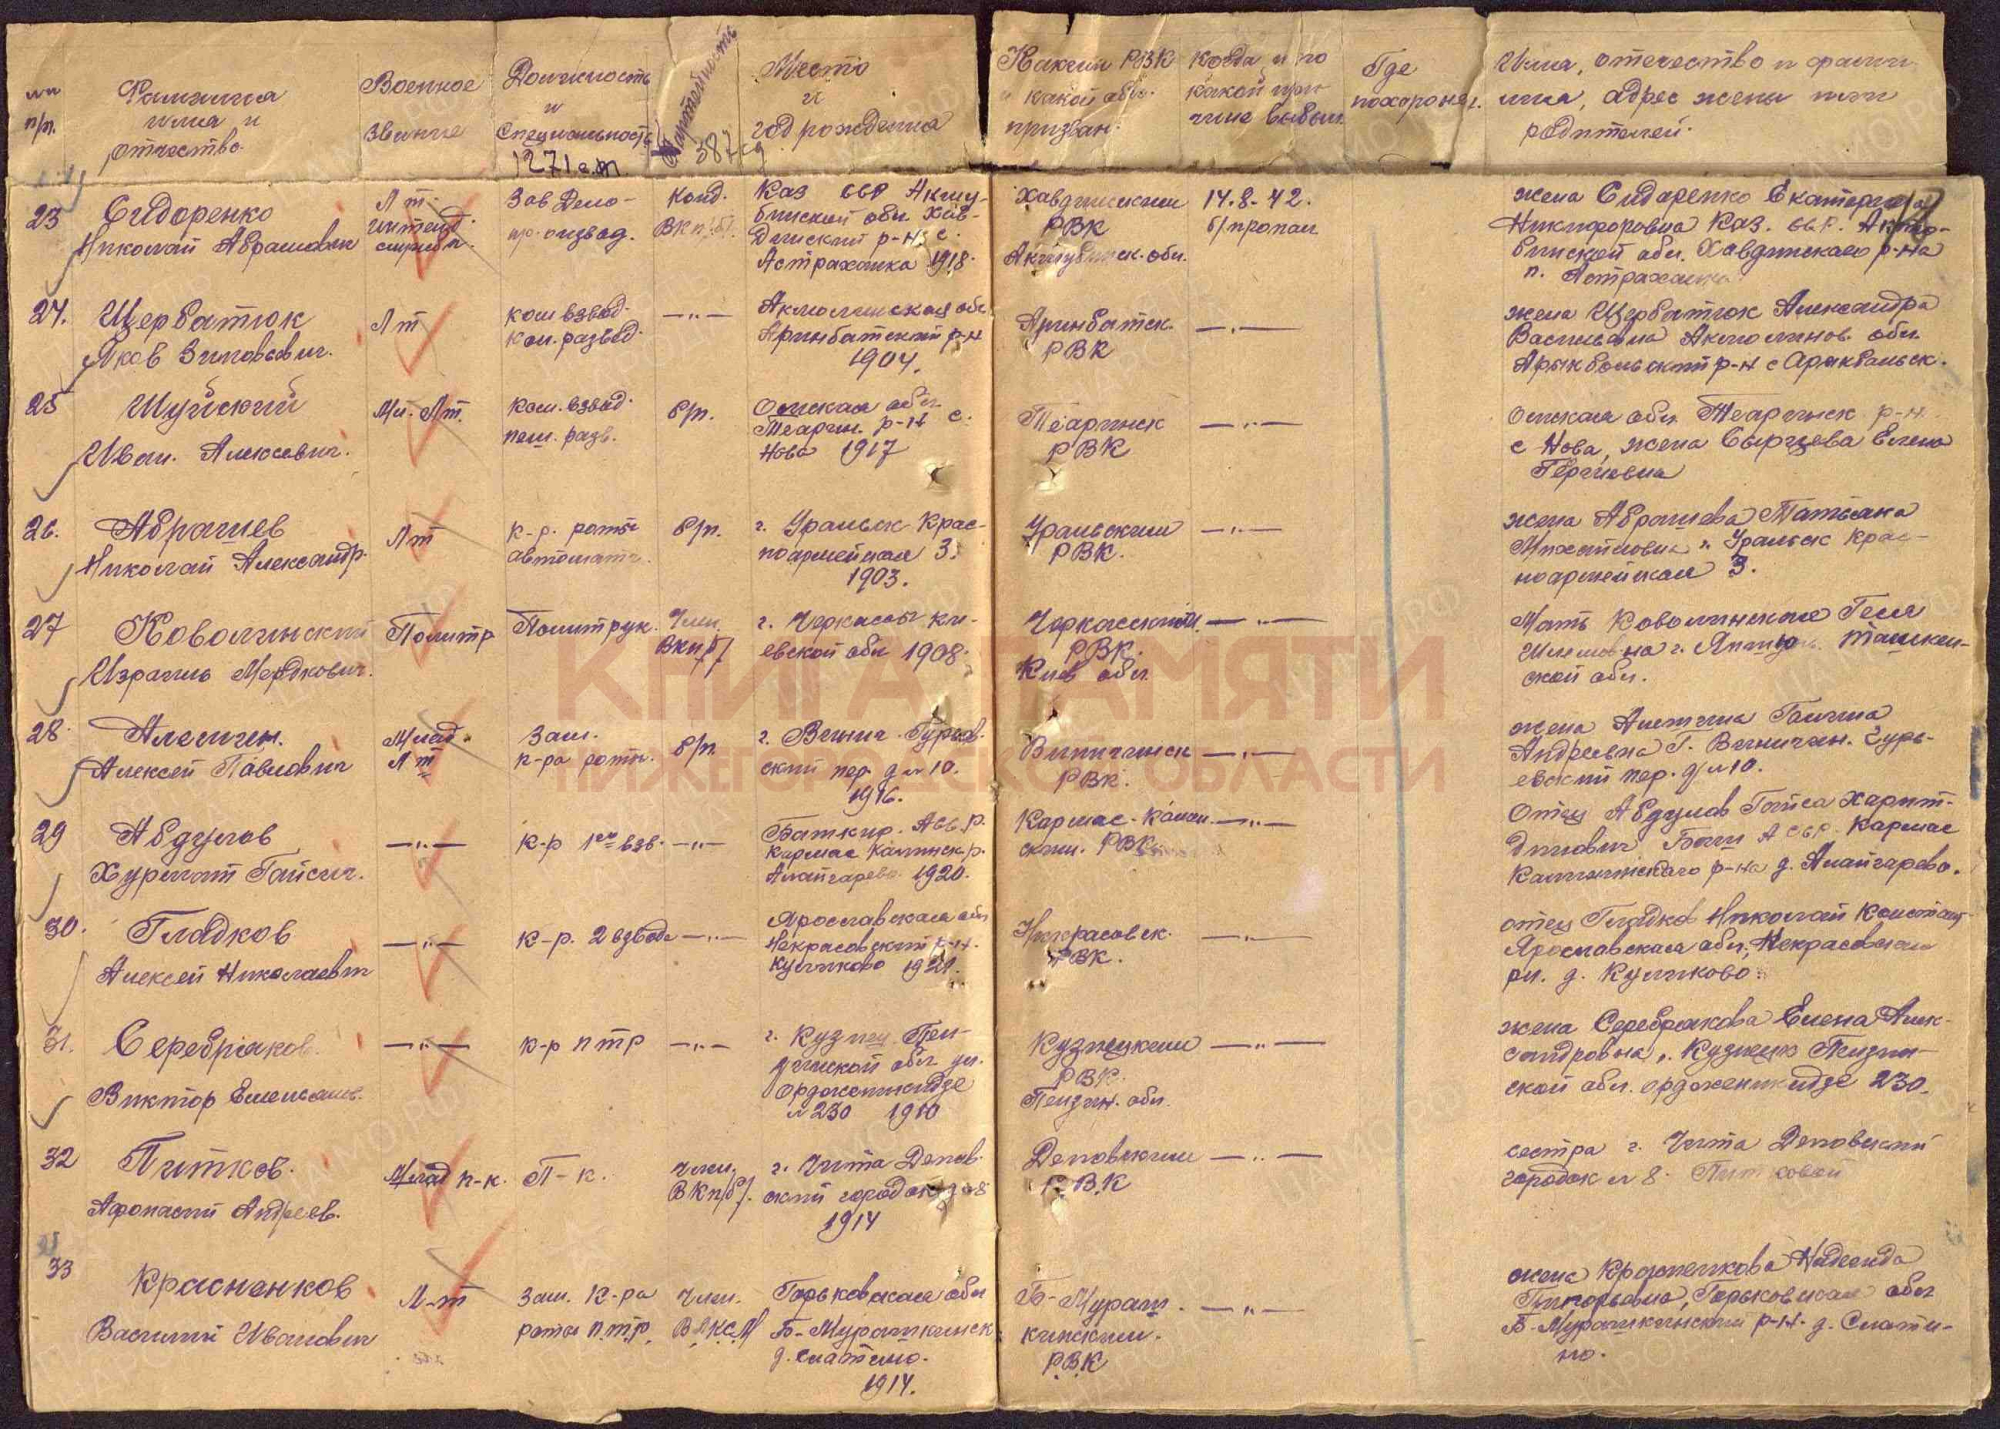 нн п/п.
Фамилия имя и отчество.
Военное звание
Должность и специальность
1271 с.п
Партийность
387 сд
Место и год рождения
Каким РВК и какой обл. призван.
Когда и по какой причине выбыл
Где похоронен.
Имя, отчество и фамилия, адрес жены или родителей.
23
Сидоренко
Николай Абрамович
Лт.
Зав. Дело-
произвед.
Канд.
ВКП/б/.
Каз ССР Актю-
бинской обл. Хав-
динский р-н с.
Астраханка 1918.
Хавдинским
РВК
Актюбинск. обл.
14.8.42.
б/пропал
жена Сидаренко Екатерина
Никифоровна Каз. ССР. Актю-
бинской обл. Хавдинского р-на
п. Астраханка
24.
Щербатюк
Яков Зиновьевич.
Лт
ком взвод.
кон. развед.
—"—
Акмолинская обл
Аринбатский р-н
1904.
Аринбатск.
РВК
—"—
жена Щербатюк Александра
Васильевна Акмолинов. обл.
Арыкбальский р-н с Арыкбальск.
25
Шуйский
Иван. Алексеевич.
Мл. Лт.
Ком. взвод.
пеш. разв.
б/п.
Омская обл.
Теаргин. р-н с.
Нова 1917
Теаринск
РВК
—"—
Омская обл. Теаринск р-н.
с Нова, жена Сырцева Елена
26.
Абрамев
Николай Александр.
Лт
к-р. роты
автоматч.
б/п.
г. Уральск Крас-
ноармейская 3.
1903.
Уральским
РВК.
—"—
жена Абрамева Татьяна
Михайловна г. Уральск Крас-
ноармейская 3.
27
Коволинский
Израиль Мордкович.
Политр
Политрук.
Член.
ВКП/б/
г. Черкассы Ки-
евской обл 1908.
Черкасский
РВК.
Киев обл.
—"—
Мать Коволинская Геня
на г. Янгиюль. Ташкен-
ской обл.
28.
Алешин.
Алексей Павлович
Млад.
Лт
Зам.
к-ра роты.
б/п
г. Винниц. Гурьев-
ский пер. д № 10.
1916.
Винничинск
РВК.
—"—
жена Алешина Галина
Андреевна г. Винничин. Гурь-
евский пер. д № 10.
29
Абдулов
Хурмат Гайсич.
—"—
к-р 1го взв.
—"—
Башкир. АССР.
Кармас Калинск р.
Алайгарево 1920.
Кармас-Калин.
ским. РВК
—"—
Отец Абдулов Гайса Харит-
динович Баш АССР. Кармас
Калининского р-на д. Алайгарево.
30.
Гладков
Алексей Николаевич
—"—
к-р. 2 взвода
—"—
Ярославская обл
Некрасовский р-н.
Куликово 1921.
Некрасовск.
РВК.
—"—
отец Гладков Николай Констант
Ярославская обл., Некрасовский
рн. д. Куликово.
31.
Серебряков.
Виктор Емельянов.
—"—
к-р птр
—"—
г. Кузнец. Пен-
зинской обл ул.
Орджоникидзе
№ 230 1910
Кузнецким
РВК.
Пензин. обл.
—"—
жена Серебрякова Елена Алек-
сандровна г. Кузнецк Пензин-
ской обл. орджоникидзе 230.
32
Питков.
Афонасий Андреев.
Млад п-к.
П-к.
Член.
ВКП/б/.
г. Чита Депов-
ский городок д 8
1914
Деповским
РВК
—"—
сестра г. Чита Деповский
городок № 8. Питковой
33
Красненков
Василий Иванович
Л-т
Зам. К-ра
роты птр.
Член.
ВЛКСМ
Горьковская обл
Б-Мурашкинск
д. Сматино.
1914.
Б-Мураш-
кинским.
РВК
—"—
жена Красненкова Надежда
Григорьевна, Горьковская обл
Б-Мурашкинский р-н. д. Смати-
но.
КНИГА ПАМЯТИ
НИЖЕГОРОДСКОЙ ОБЛАСТИ